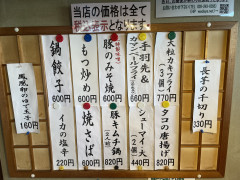 当店の価格は全て
税込表示となります。
長芋の千切り
330円
大粒カキフライ
(3個)
770円
手羽先&
カマンベールフライ
豚のみそ焼
600円
もつ炒め
600円
鍋餃子
660円
タコの唐揚げ
820円
シューマイ
440円
豚キムチ鍋
(2人前)
820円
焼さば
イカの塩辛
220円
鳳凰卵のゆで玉子
160円